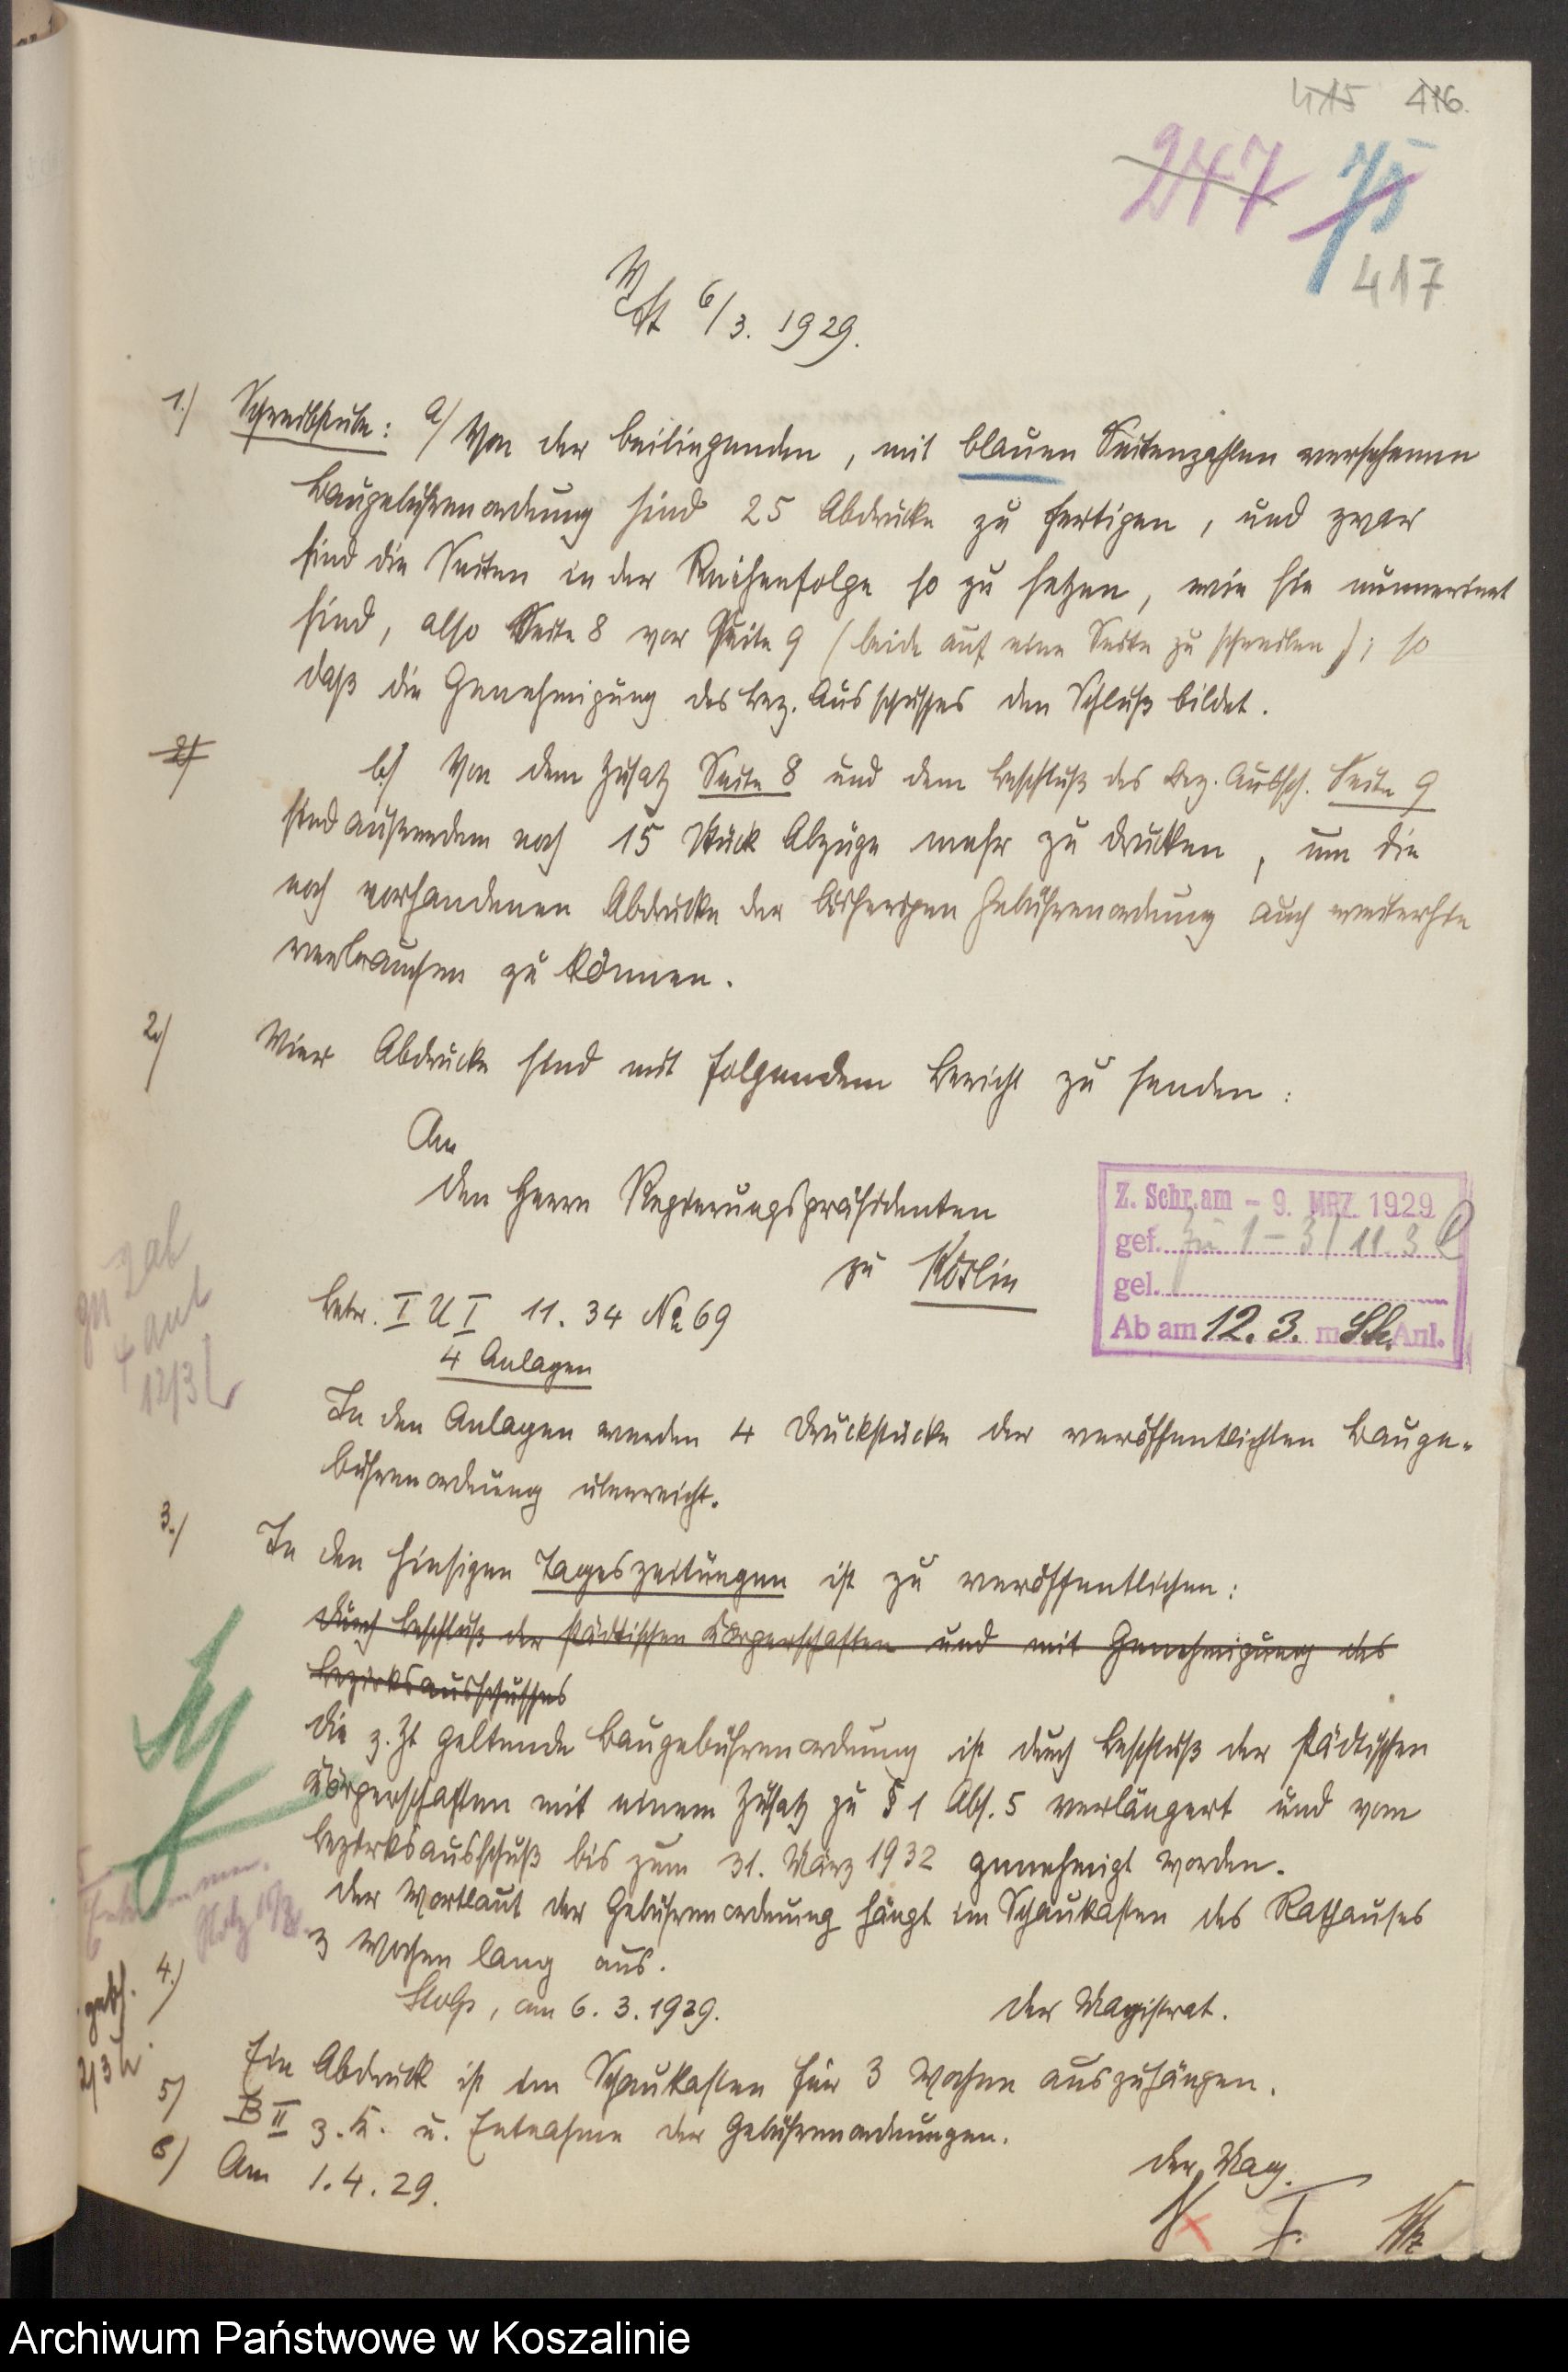 415 416.
247 75
417
6/3. 1929.
1.) Schreibstube: a/ Von der beiliegenden, mit blauen Seitenzahlen versehenen
Baugebührenordnung sind 25 Abdrucke zu fertigen, und zwar
sind die Seiten in der Reihenfolge so zu setzen, wie sie nummeriert
sind, also Seite 8 vor Seite 9 (beide auf eine Seite zu schreiben); so
daß die Genehmigung des Bez. Ausschusses den Schluß bildet.
2) b.) Von dem Zusatz Seite 8 und dem Beschluß des Bez. Aussch. Seite 9
sind ausserdem noch 15 Stück Abzüge mehr zu drucken, um die
noch vorhandenen Abdrucke der bisherigen Gebührenordnung auch weiterhin
verbrauchen zu können.
2.) Vier Abdrucke sind mit folgendem Bericht zu senden:
An
den Herrn Regierungspräsidenten
zu Köslin
Betr. I U I 11. 34 № 69
4 Anlagen
Z. Schr. am - 9. MRZ. 1929
gef. zu 1-3 / 11.3
gel.
Ab am 12. 3. m Anl.
12/3
In den Anlagen werden 4 Druckstücke der veröffentlichten Bauge-
bührenordnung überreicht.
3.) In den hiesigen Tageszeitungen ist zu veröffentlichen:
Durch Beschluß der städtischen Körperschaften und mit Genehmigung des
Bezirksausschusses
Die z. Zt geltende Baugebührenordnung ist durch Beschluß der städtischen
Körperschaften mit einem Zusatz zu § 1 Abs. 5 verlängert und vom
Bezirksausschuß bis zum 31. März 1932 genehmigt worden.
Der Wortlaut der Gebührenordnung hängt im Schaukasten des Rathauses
3 Wochen lang aus.
Stolp, am 6. 3. 1929. Der Magistrat.
4.) Ein Abdruck ist im Schaukasten für 3 Wochen auszuhängen.
5) B II z. K. u. Entnahme der Gebührenordnungen.
6) Am 1. 4. 29.
Der Mag.
Archiwum Państwowe w Koszalinie